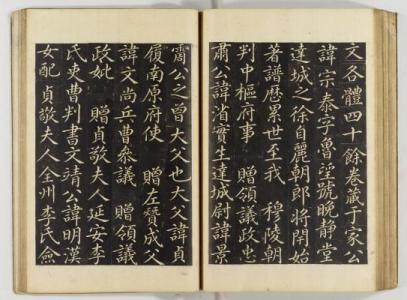 文各體四十餘卷藏于家公
諱宗泰字魯望號晚靜堂
達城之徐自麗朝郎將閈始
著譜歷累世至我 穆陵朝
判中樞府事 贈領議政忠
肅公諱渻實生達城尉諱景
霌公之曾大父也大父諱貞
履南原府使 贈左贊成父
諱文尚兵曹叅議 贈領議
政妣 贈貞敬夫人延安李
氏吏曹判書文靖公諱明漢
女配貞敬夫人全州李氏僉